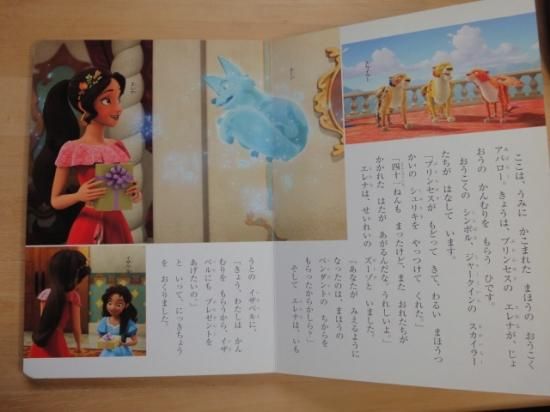 スカイラー
ここは、うみに かこまれた まほうの おうこく
アバロー。きょうは、プリンセスの エレナが、じょ
おうの かんむりを もらう ひです。
おうこくの シンボル、ジャークインの スカイラー
たちが はなして います。
「プリンセスが もどって きて、わるい まほうつ
かいの シュリキを やっつけて くれた。」
「四十一ねんも まったけど、また おれたちが
かかれた はたが あがるんだな。うれしいよ。」
エレナは、せいれいの ズーゾと いました。
「あなたが みえるように
なったのは、まほうの
ペンダントの ちからを
もらったからかしら？」
そして エレナは、いも
うとの イザベルに、
「きょう、わたしは かん
むりを もらうから、イザ
ベルにも プレゼントを
あげたいの。」
と いって、にっきちょう
を おくりました。
ズーゾ
エレナ
イザベル